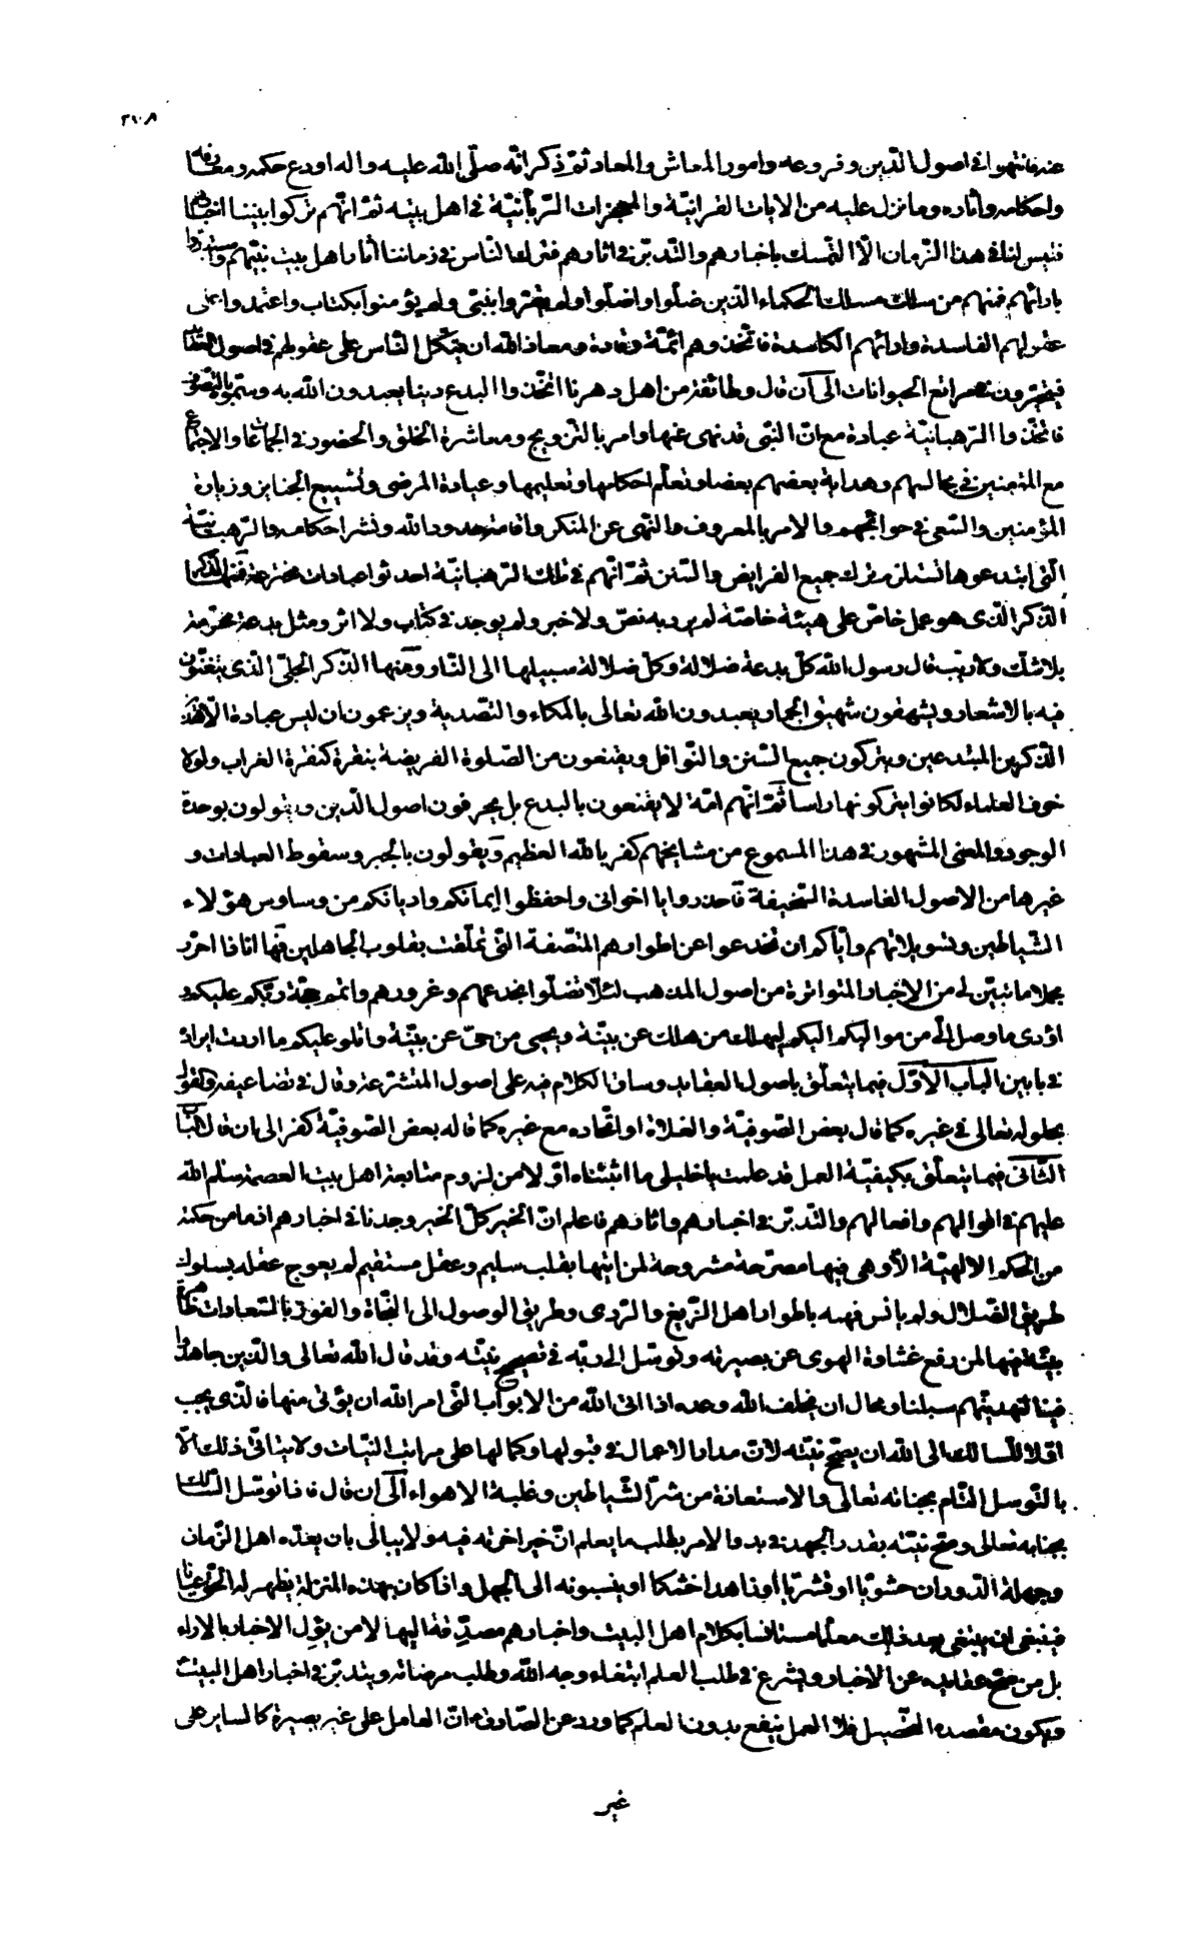 ٣١٠٨
عنه فانتهوا في اصول الدّين وفروعه وامور المعاش والمعاد ثمّ ذكر انّه صلّى الله عليه واله اودع حكمه ومعارفه
واحكامه وآثاره وما نزل عليه من الايات القرانيّة والمعجزات الرّبانيّة في اهل بيته ثمّ انّهم تركوا بيننا اخبارهم
فليس لنا في هذا الزّمان الّا التمسك باخبارهم والتّدبّر في اثارهم فترك النّاس في زماننا آثار اهل بيت نبيّهم واستبدّوا
بارائهم فمنهم من سلك مسلك الحكماء الذين ضلّوا واضلّوا ولم يقرّوا بنبيّ ولم يؤمنوا بكتاب واعتمدوا على
عقولهم الفاسدة وارائهم الكاسدة فاتّخذوهم ائمّة وقادة ومعاذ الله ان يتّكل النّاس على عقولهم في اصول العقائد
فيتحيّرون في مراتع الحيوانات الى آن قال وطائفة من اهل دهرنا اتّخذوا البدع دينا يعبدون الله به وسمّوه بالتّصوّف
فاتّخذوا الرّهبانيّة عبادة مع انّ النّبي قد نهى عنها وامر بالتّزويج ومعاشرة الخلق والحضور في الجماعات والاجتماع
مع المؤمنين في مجالسهم وهداية بعضهم بعضا وتعلّم احكامها وتعليمها وعيادة المرضى وتشييع الجنايز وزيارة
المؤمنين والسّعي في حوائجهم والامر بالمعروف والنّهي عن المنكر واقامة حدود الله ونشر احكامه والرّهبانيّة
الّتي ابتدعوها تستلزم ترك جميع الفرايض والسّنن ثمّ انّهم في تلك الرّهبانيّة احدثوا عبادات مخترعة فمنها الذكر
الذكر الذى هو عمل خاصّ على هيئة خاصّة لم يرد به نصّ ولا خبر ولم يوجد في كتاب ولا اثر ومثل بدعة محرّمة
بلا شك ولا ريب قال رسول الله كلّ بدعة ضلالة وكلّ ضلالة سبيلها الى النّار ومنها الذّكر الجليّ الّذى يتغنّون
فيه بالاشعار ويشهقون شهيق الحمار يعبدون الله تعالى بالمكاء والتّصدية ويزعمون ان ليس عبادة الّا هذين
الذّكرين المبتدعين ويتركون جميع السّنن والنّوافل ويقنعون من الصّلوة الفريضة بنقرة كنقرة الغراب ولولا
خوف العلماء لكانوا يتركونها راسا ثمّ انّهم امّة لا يقنعون بالبدع بل يحرفون اصول الدّين ويقولون بوحدة
الوجود والمعنى المشهور في هذا المسموع من مشايخهم كفر بالله العظيم ويقولون بالجبر وسقوط العبادات و
غيرها من الاصول الفاسدة السّخيفة فاحذروا يا اخوانى واحفظوا ايمانكم واديانكم من وساوس هؤلاء
الشّياطين وتسويلاتهم وايّاكم ان تخدعوا عن اطوارهم المتصنّعة الّتي تعلّقت بقلوب الجاهلين فها انا ذا احرّر
مجملا ما تبيّن لي من الاخبار المتواترة من اصول المذهب لئلّا تضلّوا بخدعهم وغرورهم واتمّ حجّة ربّكم عليكم و
اؤدى ما وصل الىّ من مواليكم اليكم ليهلك من هلك عن بيّنة ويحيى من حيّ عن بيّنة واتلو عليكم ما اردت ايراده
في بابين الباب الاوّل فيما يتعلّق باصول العقايد وساق الكلام فيه على اصول المتشرّعة وقال في تضاعيفه والقول
بحلوله تعالى في غيره كما قال بعض الصّوفيّة والغلاة او اتّحاده مع غيره كما قاله بعض الصّوفيّة كفر الى ان قال الباب
الثّانى فيما يتعلّق بكيفيّة العمل قد علمت يا خليلي ما اثبتناه اوّلا من لزوم متابعة اهل بيت العصمة سلام الله
عليهم في اقوالهم وافعالهم والتّدبّر في اخبارهم واثارهم فاعلم انّ الخير كلّ الخير وجدنا في اخبارهم اذ ما من حكمة
من الحكم الالهيّة الّا وهي فيها مصرّحة مشروحة لمن اتيها بقلب سليم وعقل مستقيم لم يعوج عقله بسلوك
طريق الضّلال ولم يانس فهمه باطوار اهل الزّيغ والرّدى وطريق الوصول الى النّجاة والفوز بالسّعادات ظاهرة
بيّنة فيها لمن رفع غشاوة الهوى عن بصيرته وتوسّل الى ربّه في تصحيح نيّته وقد قال الله تعالى والّذين جاهدوا
فينا لنهدينّهم سبلنا ومحال ان يخلف الله وعده اذا اتى الله من الابواب الّتي امر الله ان يؤتى منها فالذى يجب
اوّلا للسّالك الى الله ان يصحّح نيّته لانّ مدار الاعمال في قبولها وكمالها على مراتب النّيّات ولا يتاتّى ذلك الّا
بالتّوسل التّام بجنابه تعالى والاستعاذة من شرّ الشّياطين وغلبة الاهواء الى ان قال فاذا توسّل السّالك
بجنابه تعالى وصحّح نيّته بقدر الجهد في بدو الامر يطلب ما يعلم انّ خير اخرته فيه ولا يبالى بان يعدّه اهل الزّمان
وجهلة الدّوران حشويّا او قشريّا او زاهدا خشكا او ينسبونه الى الجهل واذا كان بهذه المنزلة يظهر له الحقّ عيانا
فينبغى ان يبتغى بعد ذلك معلّما مستانسا بكلام اهل البيت واخبارهم مصدّقة اليها لا من يؤوّل الاخبار بالاراء
بل من صحّح عقايده عن الاخبار ويشرع في طلب العلم ابتغاء وجه الله وطلب مرضاته ويتدبّر في اخبار اهل البيت
ويكون مقصده التّحصيل فلا العمل ينفع بدون العلم كما ورد عن الصّادق ع انّ العامل على غير بصيرة كالساير على
غير